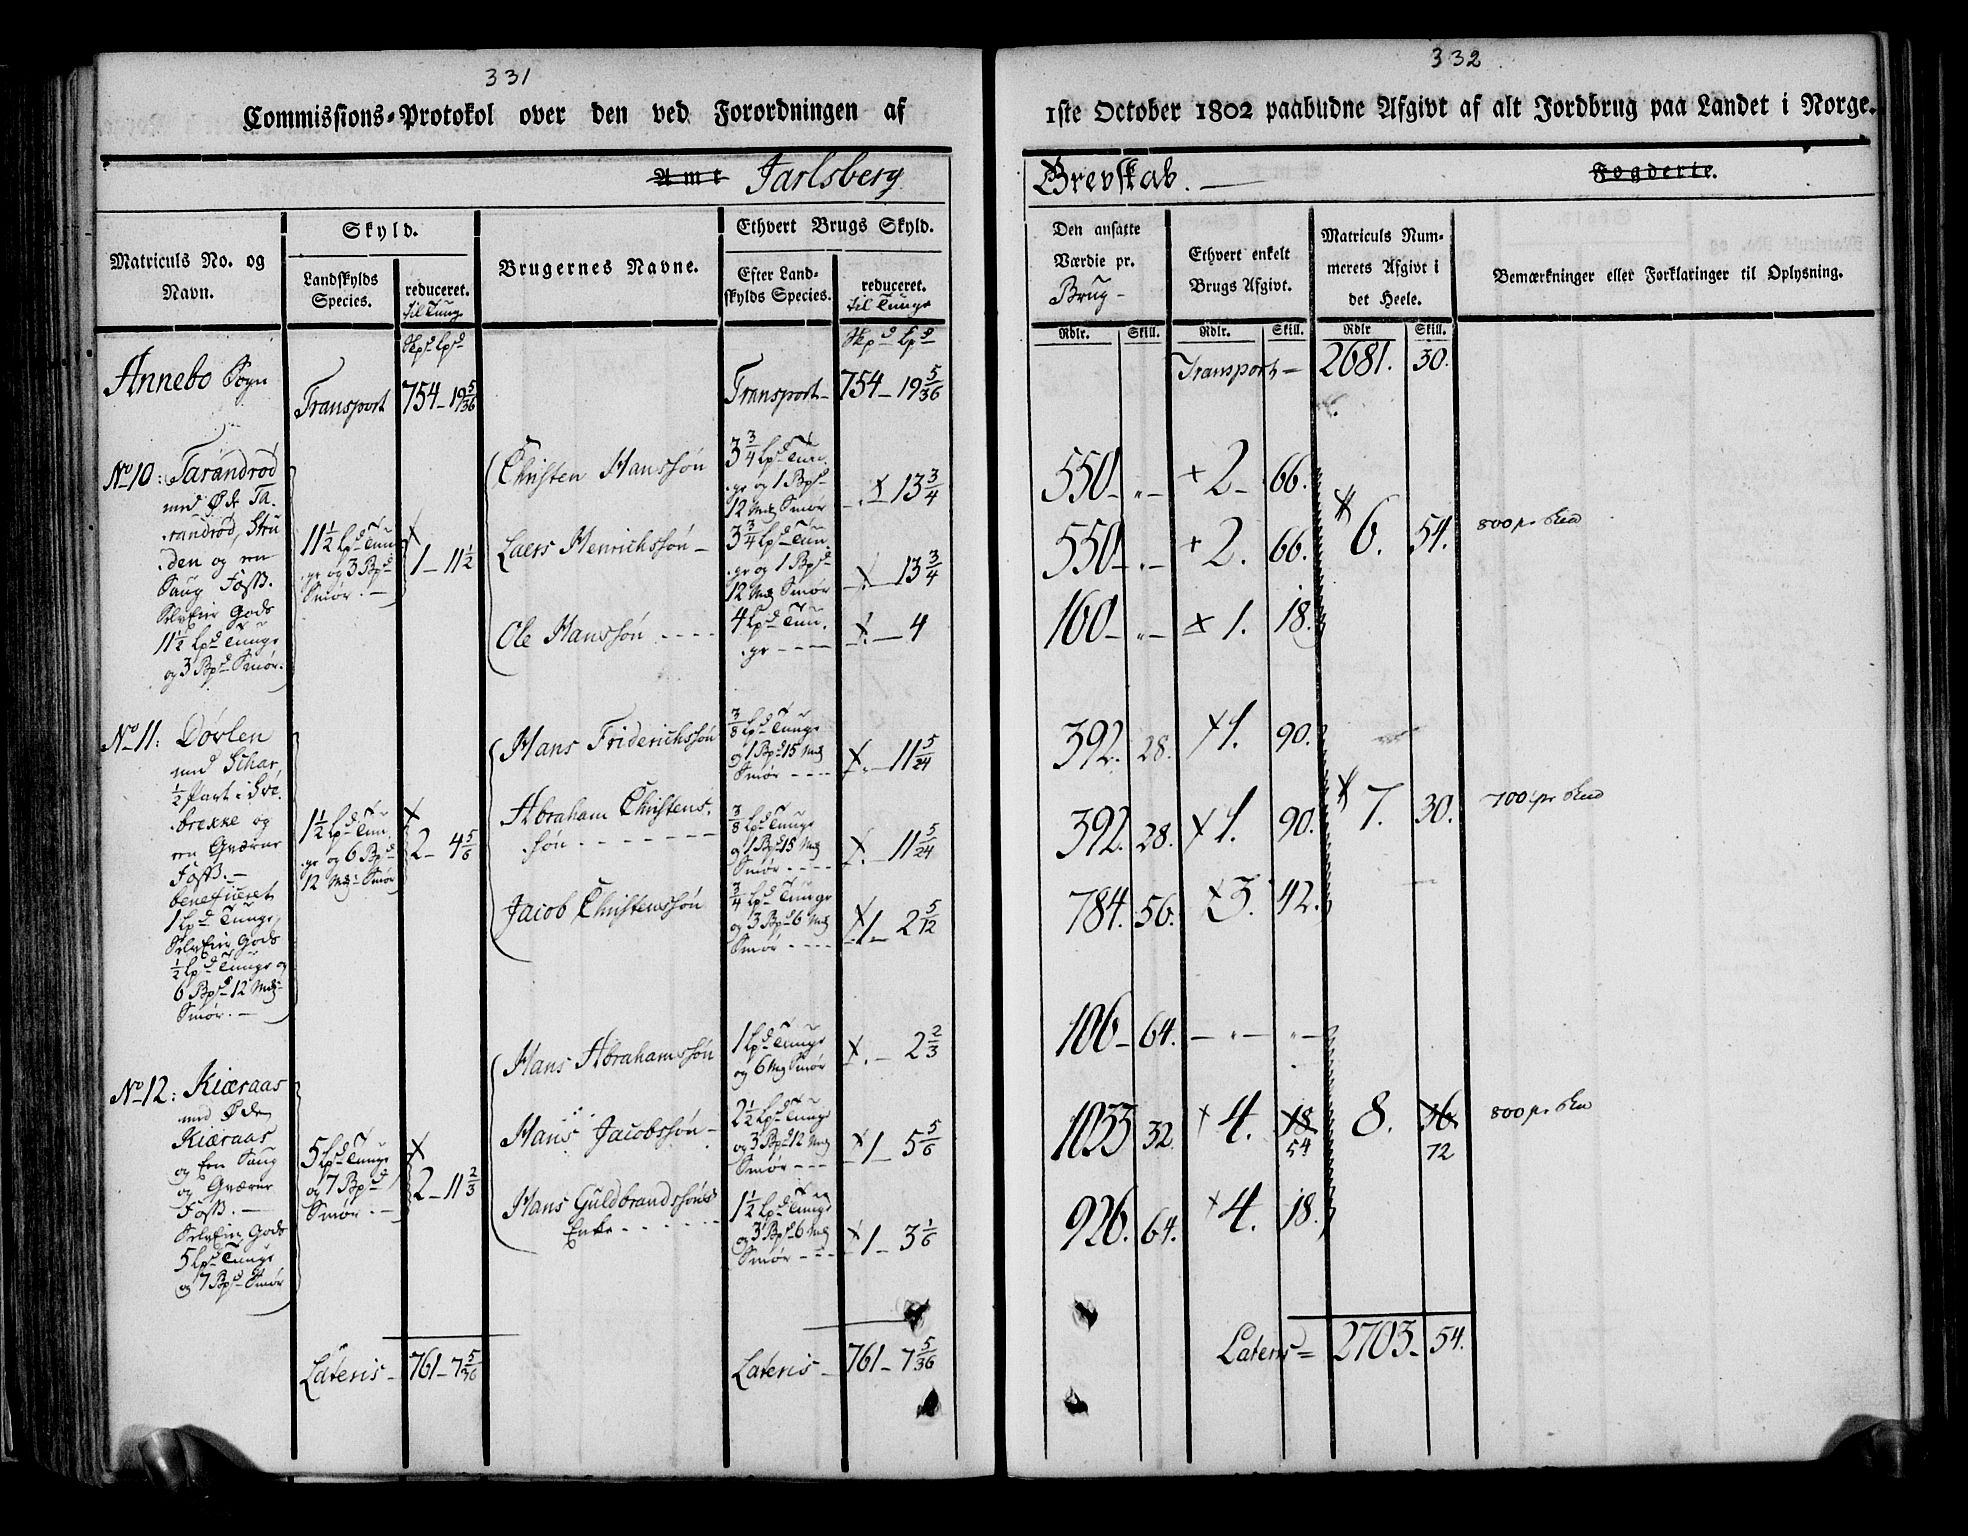 331
Commissions-Protokol over den ved Forordningen af
Amt Jarlsberg
Matriculs No. og Navn.
Skyld.
Landskylds Species.
reduceret. til Tunge
Brugernes Navne.
Ethvert Brugs Skyld.
Efter Landskylds Species.
reduceret. til Tunge
Skpd Lpd
Skpd Lpd
Annebo Sogn
Transport 754 – 19 5/36
Transport – 754 – 19 5/36
No 10: Tarandrød
med Øde Ta-
randrød, Stru
den og een
Saug Foss.
SelvEier Gods
11 1/2 Lpd Tunge
og 3 Bpd Smør.
11 1/2 Lpd Tun
ge og 3 Bpd
Smør. –
1 – 11 1/2
Christen Hanssøn
3 3/4 Lpd Tun
ge og 1 Bpd
12 Mk Smør
– 13 3/4
Laers Henrichssøn –
3 3/4 Lpd Tun
ge og 1 Bpd
12 Mk Smør
– 13 3/4
Ole Hanssøn - - - -
4 Lpd Tun
ge - - - -
– 4
No 11: Dørlen
med Schar
1/2 Part i
brekke og
een Qværne
Foss. –
beneficeret
1 Lpd Tunge,
SelvEier Gods
1/2 Lpd Tunge og
6 Bpd 12 Mk
Smør. –
1 1/2 Lpd Tun
ge og 6 Bpd
12 Mk Smør
2 – 4 5/6
Hans Friderichssøn
3/8 Lpd Tunge
og 1 Bpd 15 Mk
Smør - - - -
– 11 5/24
Abraham Christens
søn - - - - - -
3/8 Lpd Tunge
og 1 Bpd 15 Mk
Smør - - - -
– 11 5/24
Jacob Christenssøn
3/4 Lpd Tunge
og 3 Bpd 6 Mk
Smør - - - -
1 – 2 5/12
No 12: Kiæraas
med Øde
Kiæraas
og Een Saug
og Qværne
Foss. –
SelvEier Gods
5 Lpd Tunge
og 7 Bpd Smør
5 Lpd Tunge
og 7 Bpd
Smør. –
2 – 11 2/3
Hans Abrahamssøn
1 Lpd Tunge
og 6 Mk Smør
– 2 2/3
Hans Jacobssøn –
2 1/2 Lpd Tunge
og 3 Bpd 12 Mk
Smør - - -
1 – 5 5/6
Hans Guldbrandssøns
Enke - - - - -
1 1/2 Lpd Tunge
og 3 Bpd 6 Mk
Smør - - -
1 – 3 1/6
Lateris – 761 – 7 5/36
Lateris – 761 – 7 5/36
332
1ste October 1802 paabudne Afgivt af alt Jordbrug paa Landet i Norge.
Grevskab. Fogderie.
Den ansatte Værdie pr. Brug –
Ethvert enkelt Brugs Afgivt.
Matriculs Nummerets Afgivt i det Heele.
Bemærkninger eller Forklaringer til Oplysning.
Rdlr. Skill. Rdlr. Skill. Rdlr Skill.
Transport – 2681. 30.
550 – „ – + 2 – 66.
550 – „ – + 2. 66. 6. 54. 800 pr.
160 – „ – + 1. 18.
392. 28. 1. 90.
392. 28. 1. 90. 7. 30. 700 pr.
784. 56. 3. 42.
106 – 64. – „ – „ –
1033 32. 4. 18 54 8. 36 72 800 pr.
926. 64. 4. 18.
Lateris = 2703 – 54.